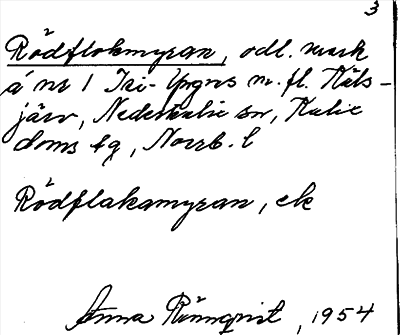 3
Rödflokmyran, odl. mark
å nr 1 Tri-Yngves m. fl. Räks-
järv, Nederkalix sn, Kalix
doms tg, Norrb. l
Rödflakamyran, ek
Anna Rönnqvist, 1954